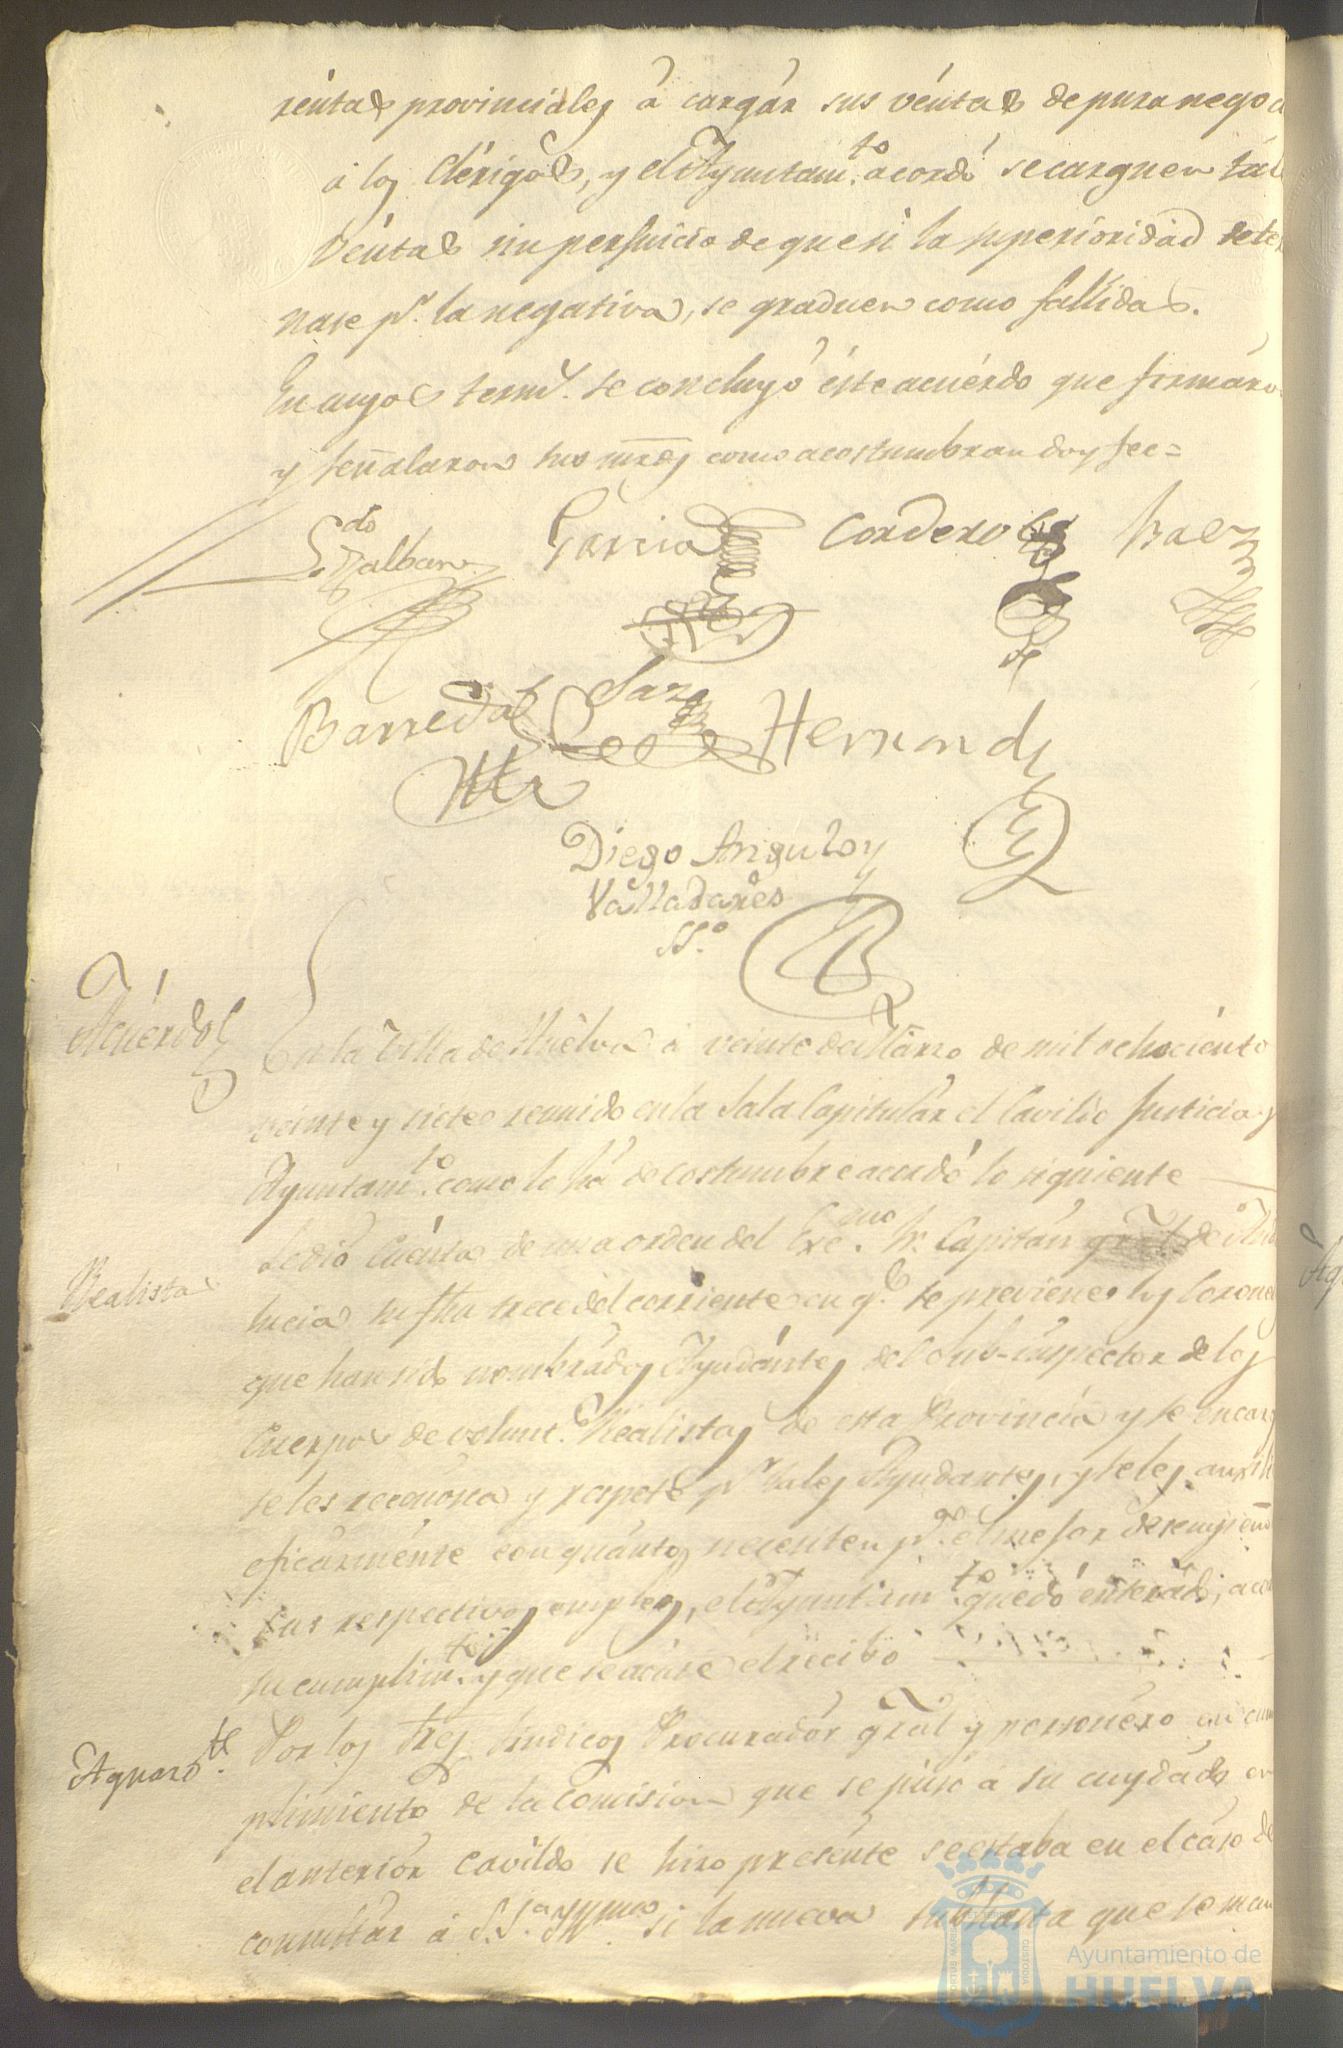 rentas provinciales á cargár sus véntas de pura nego
á los Clérigos, y el Ayuntam.to acordó se carguen tál
véntas sin perjuicio de que si la superioridad deter
nase p.r la negativa, se graduen como fallidas.
En cuyos term.s se concluyó éste acuérdo que firmáro
y señalaron sus mrds como acostumbran doy fee=
Garcia Cordero Baez
Barreda Saez Hernandz
Diego Angulo y
Valladares
SS.o
Acuérdo
En la Villa de Huélva á veinte de Márzo de mil ochociénto
veinte y siete reunido en la Sala Capitulár el Cavildo Justicia y
Ayuntam.to como lo há de costumbre acordó lo siguiente
Realistas
Se dió Cuénta de una orden del Exc.mo Sr. Capitán grál de Anda
lucia su fha trece del corriente en q.e se previene los Coronel
que han sido nombrados Ayudántes del Sub-inspector de los
Cuerpos de volunt.s Realistas de esta Provincia y se encarg
se les reconosca y respete p.r tales Ayudantes, y se les auxili
eficazménte con quánto necesiten p.a el mejor desempeño
sus respectivos empleos, el Ayuntam.to quedó enterádo, acor
su cumplim.to y que se acúse el recibo
Aguard.te
Por los Sres Síndicos Procuradór grál y personéro en cum
plimiento de la comision que se púso á su cuydado en
el anteriór Cavildo se hizo presénte se estaba en el cáso de
consultár á S.S.a Yllma si la nueva subhasta que se man
Ayuntamiento de
HUELVA